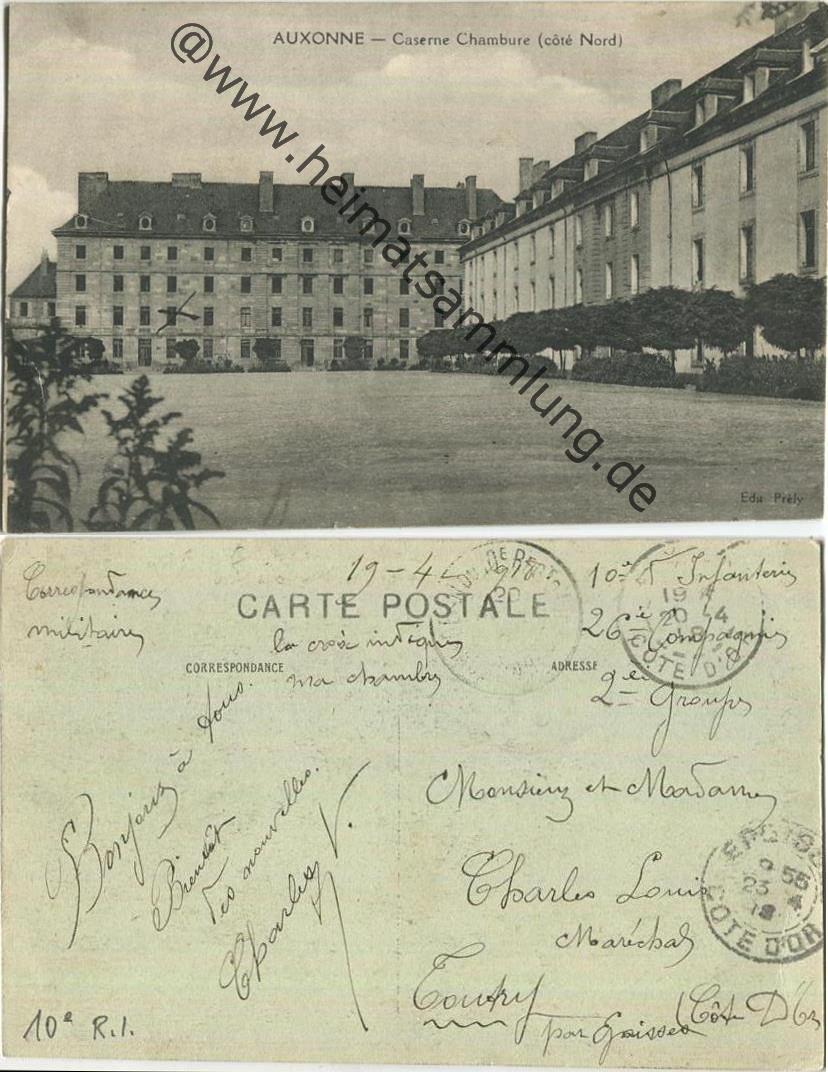 AUXONNE — Caserne Chambure (côté Nord)
@www.heimatsammlung.de
Edit Prély
Correspondance
militaire
19-4-1918
CARTE POSTALE
la croix indique
ma chambre
CORRESPONDANCE
ADRESSE
10è d'Infanterie
26è Compagnie
2è Groupe
19
20-4
18
CÔTE D'OR
Bonjour à tous.
Bientôt
des nouvelles.
Charles V.
Monsieur et Madame
Charles Louis
Maréchal
Toutry
par Epoisses
(Côte D'Or
EPOISSES
9 55
23 4
18
COTE D'OR
10e R.I.